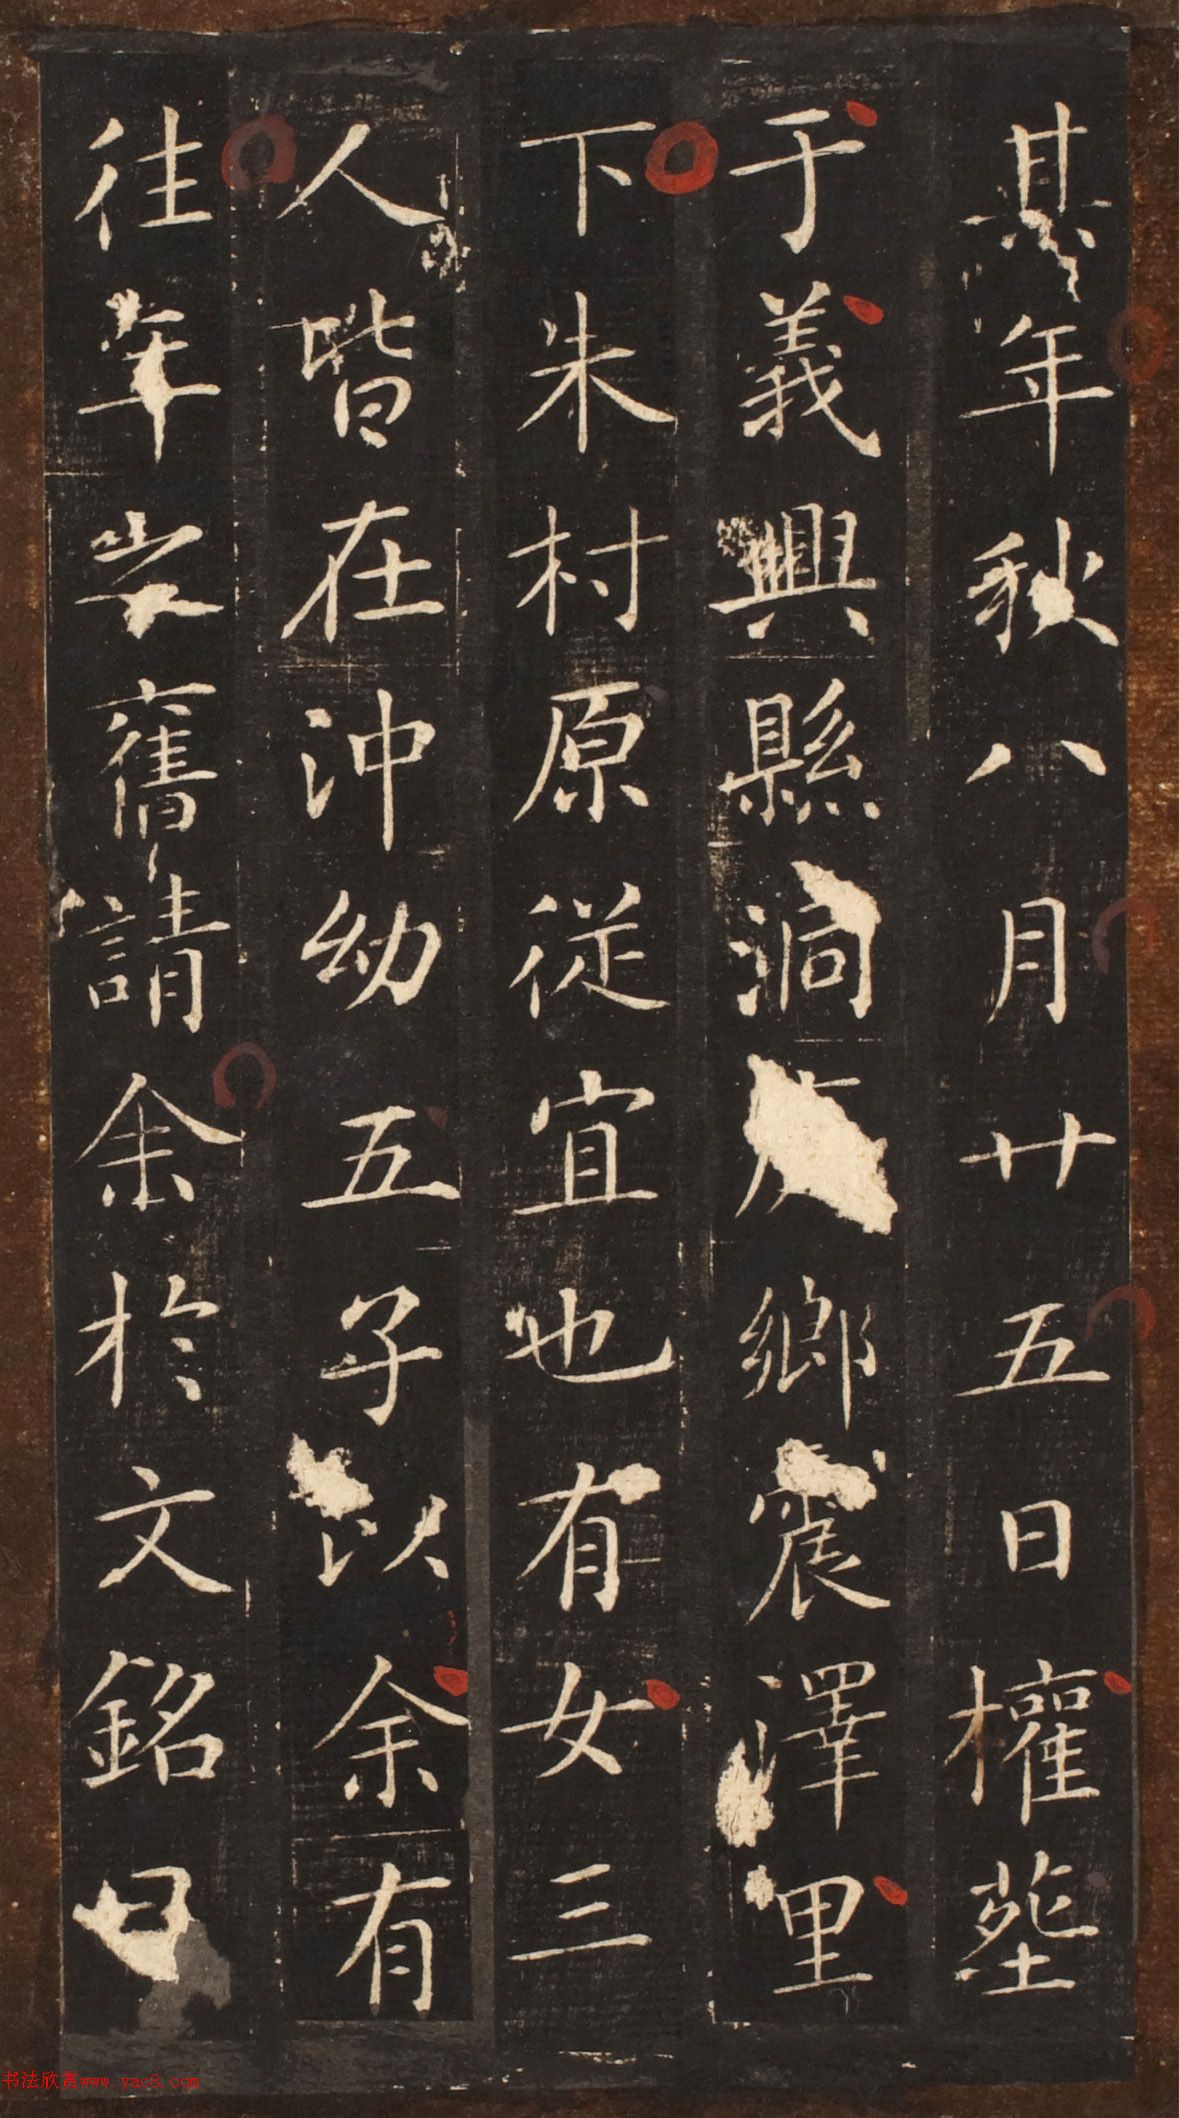 其年秋八月廿五日權塟
于義興縣洞鄉震澤里
下朱村原從宜也有女三
人皆在沖幼五子以余有
往年舊請余於文銘曰
书法欣赏www.yac8.com